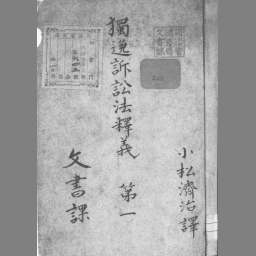 小松濟治譯
獨逸訴訟法釋義 第一
文書課